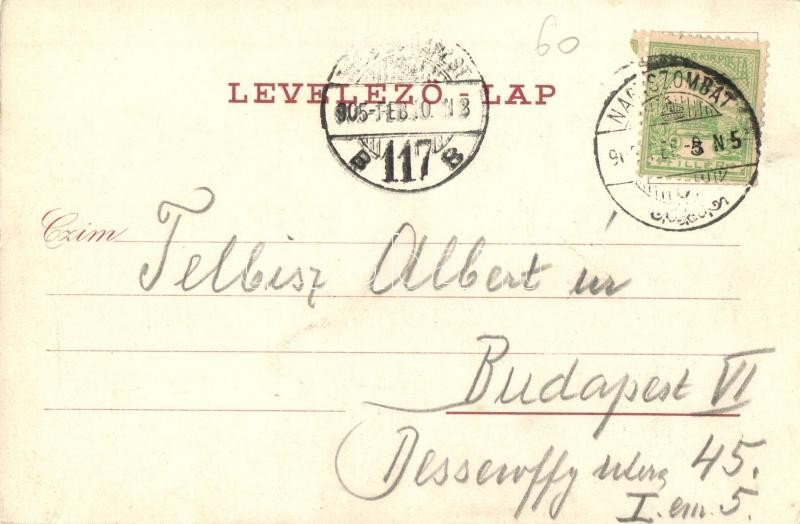 60
LEVELEZŐ-LAP
905-FEB.10. N 3
B 117 B
NAGYSZOMBAT
N 5
FILLÉR
Czim
Telbisz Albert úr
Budapest VI
Dessewffy utcza 45.
I. em. 5.